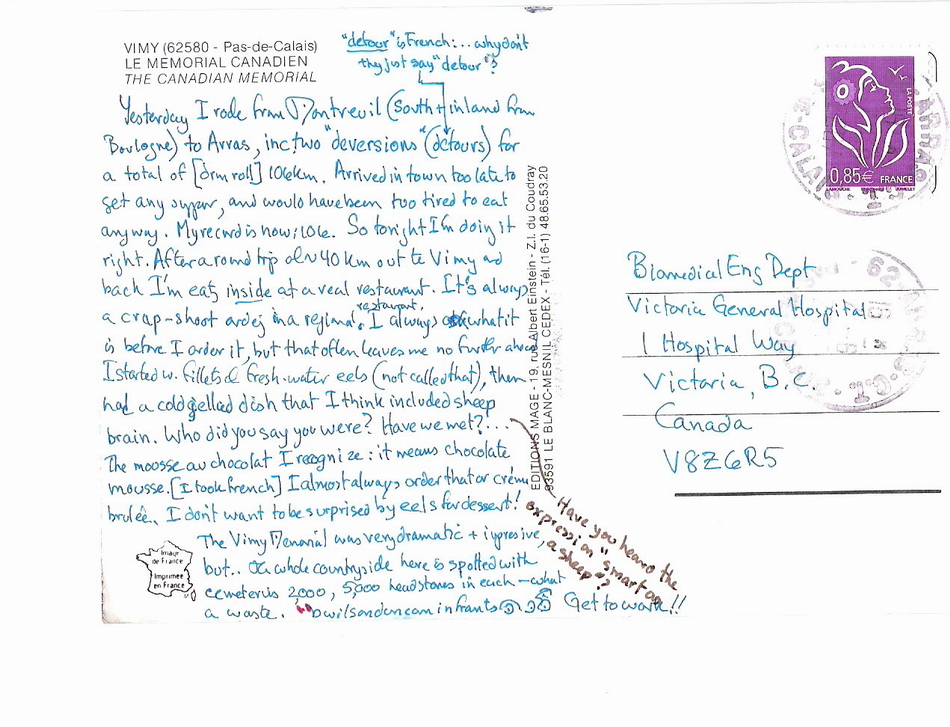 VIMY (62580 - Pas-de-Calais)
LE MEMORIAL CANADIEN
THE CANADIAN MEMORIAL
"detour" is French:.. why don't
they just say "detour"?
Yesterday I rode from Montreuil (South + inland from
Boulogne) to Arras, inc. two "deversions" (detours) for
a total of [drm roll] 106km. Arrived in town too late to
get any supper, and would have been too tired to eat
anyway. My record is now: 106. So tonight I'm doing it
right. After a round trip of ~40 km out to Vimy and
back I'm eatg inside at a real restaurant. It's always
a crap-shoot ordeg in a regional restaurant. I always ask what it
is before I order it, but that often leaves me no further ahead
I started w. fillets of fresh-water eels (not called that), then
had a cold gelled dish that I think included sheep
brain. Who did you say you were? Have we met?...
The mousse au chocolat I recognize: it means chocolate
mousse. [I took french] I almost always order that or crème
brulée. I don't want to be surprised by eels for dessert!
The Vimy Memorial was very dramatic + impressive,
but.. the whole countryside here is spotted with
cemeteries 2,000, 5,000 headstones in each – what
a waste. dwilsonduncan in France Get to work!!
Have you heard the
expression "smart as
a sheep"?
Image
de France
Imprimée
en France
EDITIONS MAGE - 19, rue Albert Einstein - Z.I. du Coudray
93591 LE BLANC-MESNIL CEDEX - Tél. (16-1) 48.65.53.20
0,85€ FRANCE
LA POSTE
Biomedical Eng Dept
Victoria General Hospital
1 Hospital Way
Victoria, B.C.
Canada
V8Z6R5